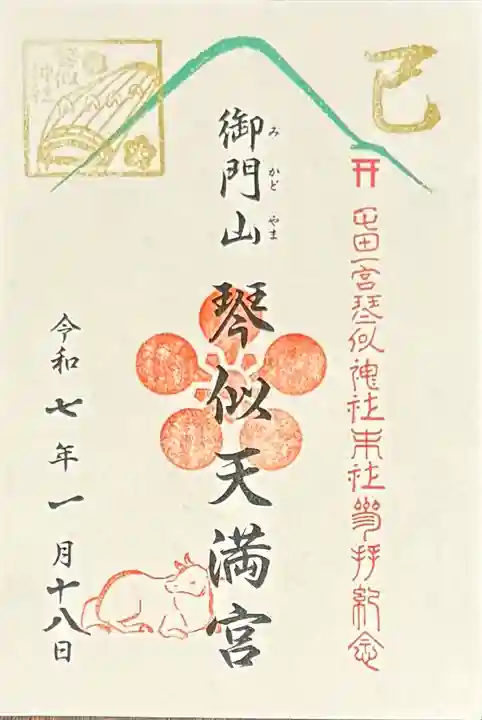 己
屯田一宮琴似神社末社参拝紀念
御門山
みかどやま
琴似天満宮
令和七年一月十八日
琴似
神社